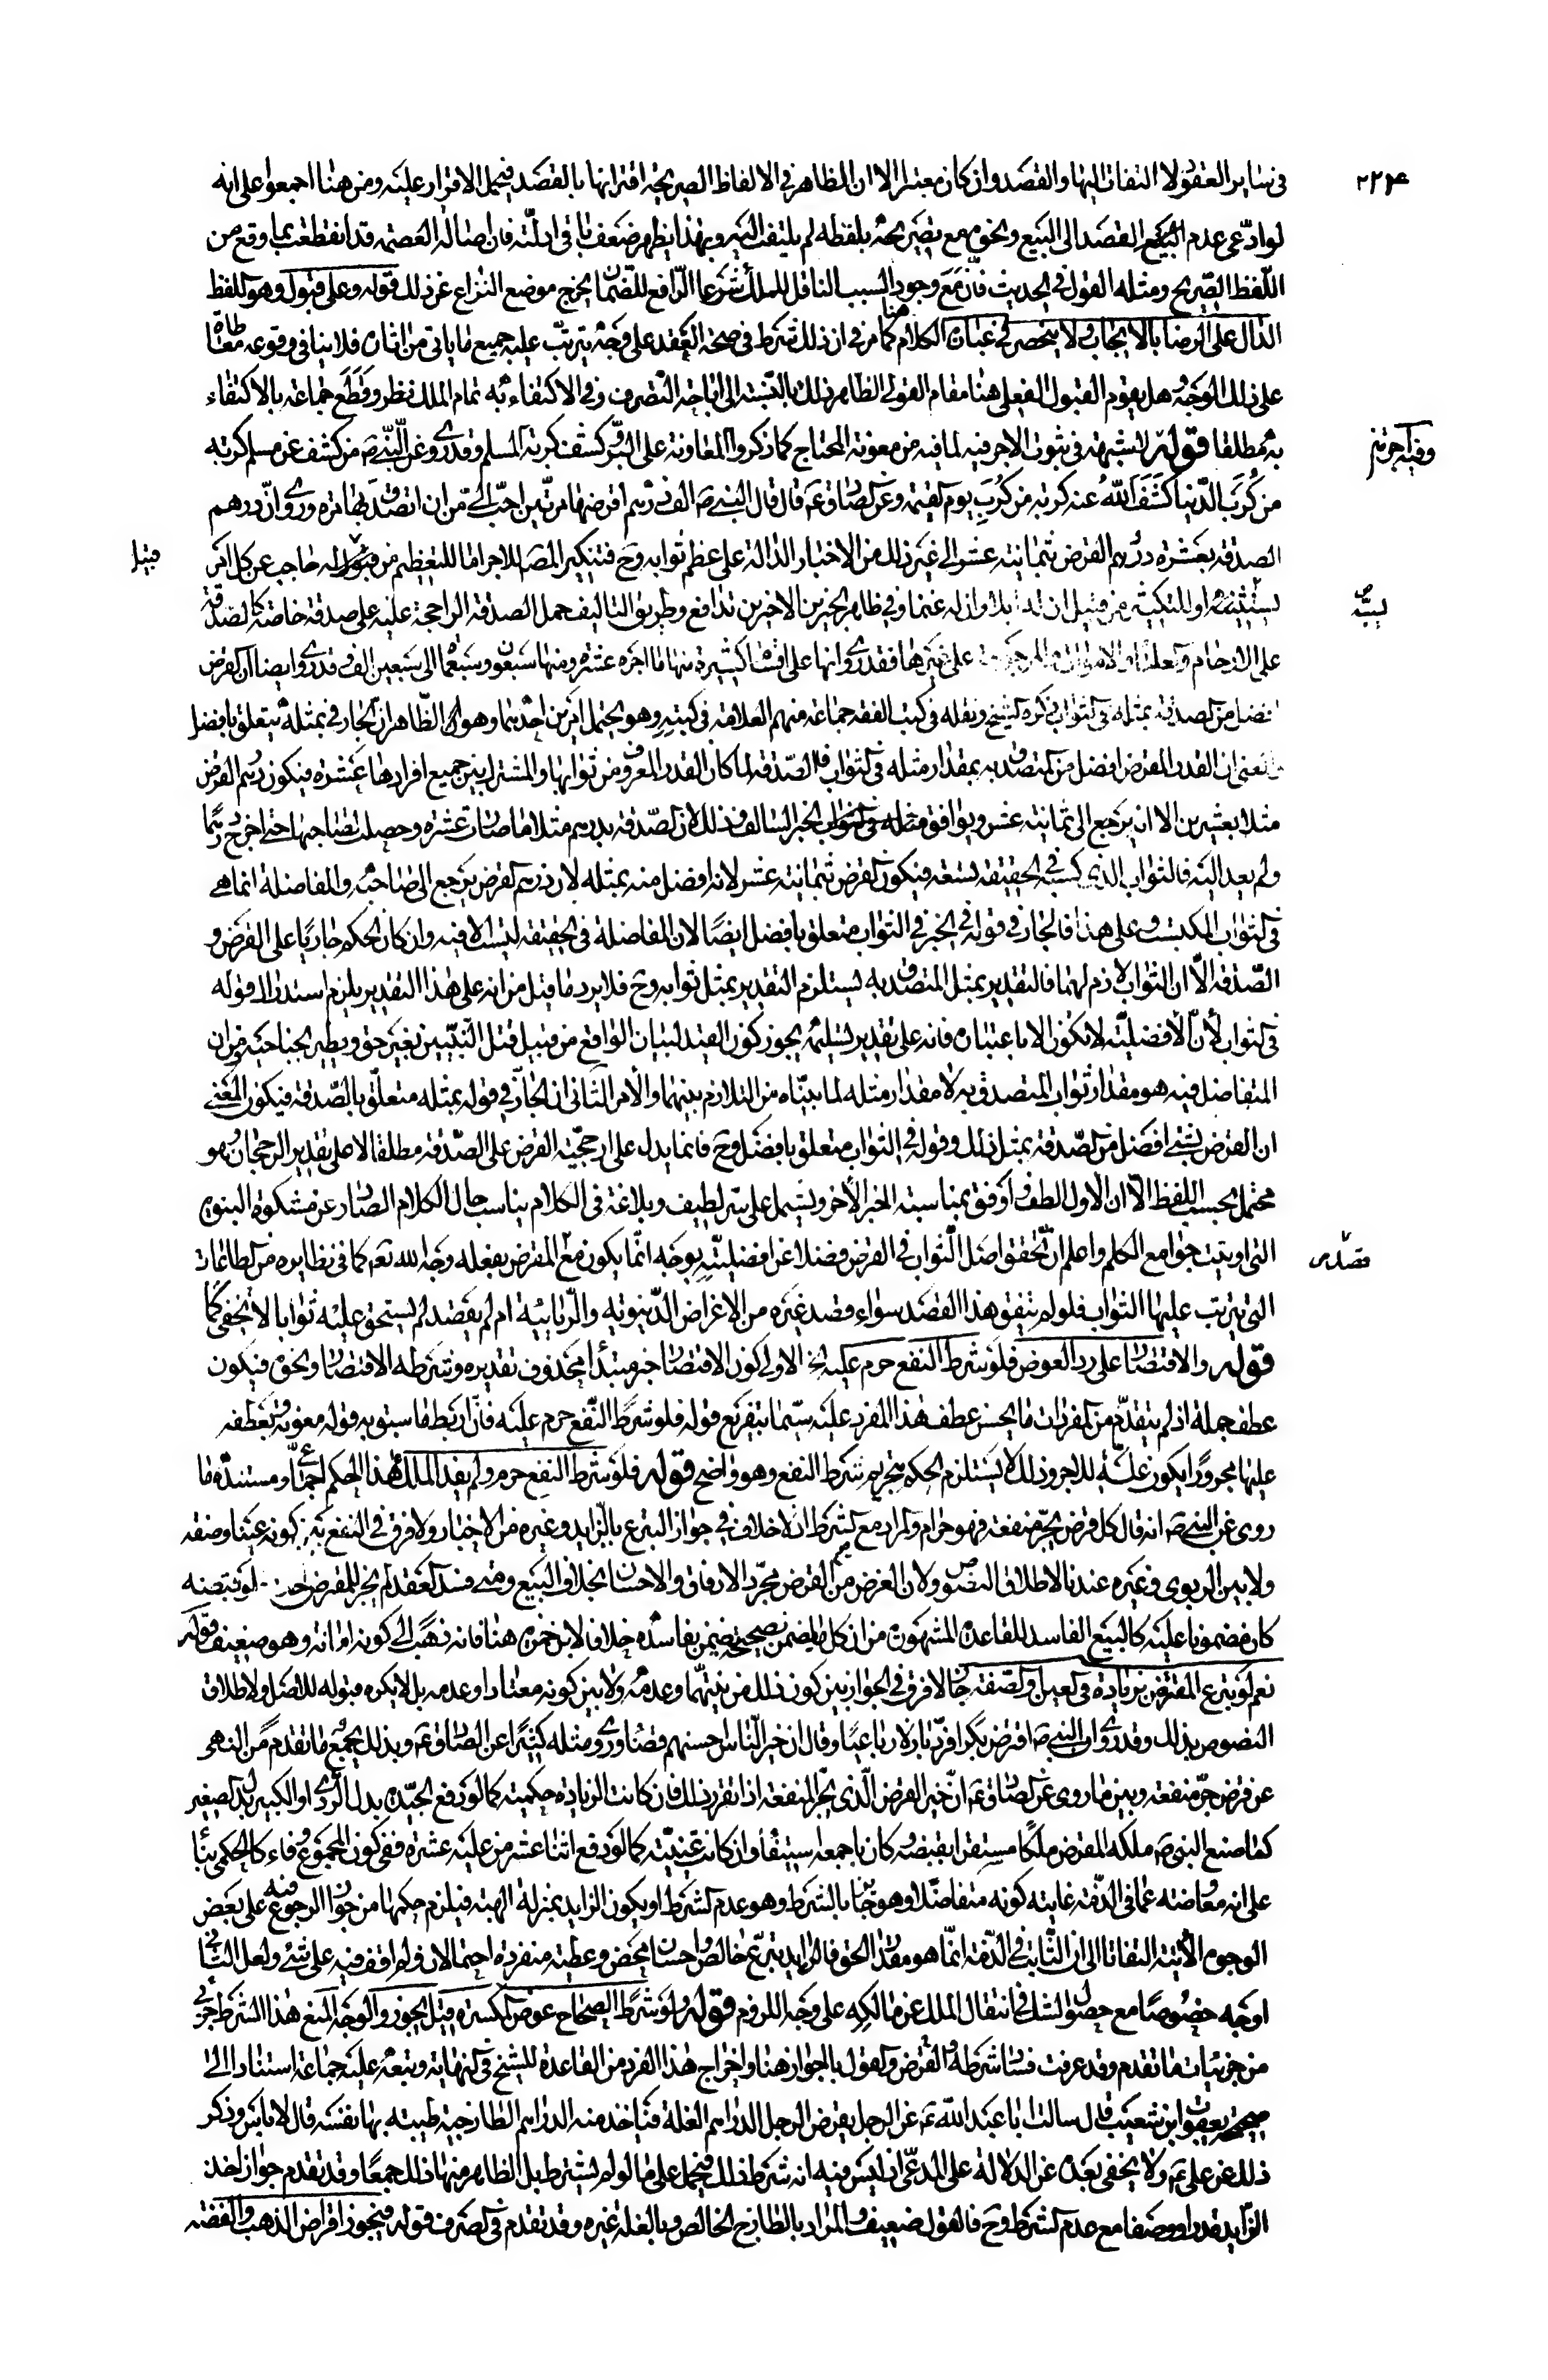 ٢٢٤
في ساير العقود لا التفات اليها والقصد وان كان معتبرا الا ان الظاهر في الالفاظ الصريحة اقترانها بالقصد فيحمل الاقرار عليه ومن هنا اجمعوا على انه
لو ادعى عدم القصد الى البيع ونحوه مع تصريحه بلفظه لم يلتفت اليه وبهذا يظهر ضعف باقي ادلته فان اصالة العصمة قد انقطعت بما وقع من
اللفظ الصريح ومثله القول في الحديث فان مع وجود السبب الناقل للملك شرعا الرافع للضمان يخرج موضع النزاع عن ذلك قوله وعلى قبول وهو اللفظ
الدال على الرضا بالايجاب ولا ينحصر في عبارة الكلام هنا كما مر في ان ذلك شرط في صحة العقد على وجه يترتب عليه جميع ما ياتي من اثاره فلا ينافي وقوعه
على ذلك الوجه هل يقوم القبول الفعلي هنا مقام القولي الظاهر ذلك بالنسبة الى اباحة التصرف وفي الاكتفاء به تمام الملك نظر وقطع جماعة بالاكتفاء
به مطلقا قوله لا شبهة في ثبوت الاجر فيه لما فيه من معونة المحتاج كما ذكروا المعاونة على البر وكشف كربة المسلم وقد روي عن النبي ص من كشف عن مسلم كربة
وفيه اجر
من كرب الدنيا كشف الله عنه كربة من كرب يوم القيمة وعن الصادق ع قال قال النبي ص الف درهم اقرضها مرتين احب الي من ان اتصدق بها مرة وروي ان درهم
الصدقة بعشرة ودرهم القرض بثمانية عشر الى غير ذلك من الاخبار الدالة على عظم ثوابه وح فتنكير المص للاجر اما للتعظيم من قبيل له حاجب عن كل امر
قبيل
يشينه او للتكثير من قبيل ان له لابلا وان له لغنما وفي ظاهر الخبرين الاخيرين تدافع وطريق التاليف حمل الصدقة الراجحة عليه على صدقة خاصة كالصدقة
على الارحام والعلماء والاموات على غيرها فقد روي انها على اقسام كثيرة منها ما اجره عشرة ومنها سبعون وسبعمائة الى سبعين الف وقد روي ايضا ان القرض
افضل من الصدقة بمثله في الثواب ذكره الشيخ ونقله في كتب الفقه جماعة منهم العلامة في كتبه وهو يحتمل امرين احدهما وهو الظاهر ان الجار في بمثله يتعلق بافضل
والمعنى ان القدر المقرض افضل من المتصدق به بمقدار مثله في الثواب فالصدقة لما كان القدر المعروف من ثوابها والمشترك بين جميع افرادها عشرة فيكون درهم القرض
مثلا بعشرين الا انه يرجع الى ثمانية عشر ويوافق الخبر السالف وذلك لان الصدقة بدرهم مثلا لما صارت عشرة وحصلت لصاحبها حتى اخرج درهما
ولم يعد اليه فالثواب الذي كسبه في الحقيقة تسعة فيكون القرض ثمانية عشر لانه افضل منه بمثله لان درهم القرض يرجع الى صاحبه والمفاضلة انما هي
في الثواب المكتسب وعلى هذا فالجار في قوله في الخبر في الثواب متعلق بافضل ايضا لان المفاضلة في الحقيقة ليست الا فيه وان كان الحكم جاريا على القرض و
الصدقة الا ان الثواب لازم لهما فالتقدير بمثل المتصدق به يستلزم التقدير بمثل ثوابه وح فلا يرد ما قيل من انه على هذا التقدير يلزم استدراك قوله
في الثواب لان الافضلية لا تكون الا باعتباره فانه على تقدير تسليمه يجوز كون القيد لبيان الواقع من قبيل قتل النبيين بغير حق ويطير بجناحيه ومن ان
المتفاضل فيه هو مقدار ثواب المتصدق به لا مقدار مثله لما بيناه من التلازم بينهما والامر الثاني ان الجار في قوله بمثله متعلق بالصدقة فيكون المعنى
ان القرض بشيء افضل من الصدقة بمثل ذلك وقوله في الثواب متعلق بافضل وح فانما يدل على ارجحية القرض على الصدقة مطلقا لا على تقدير الرجحان وهو
محتمل بحسب اللفظ الا ان الاول الطف واوفق بمناسبة الخبر الاخر ويشتمل على سر لطيف وبلاغة في الكلام يناسب حال الكلام الصادر عن مشكوة النبوة
التي اوتيت جوامع الكلم واعلم ان تحقق اصل الثواب في القرض فضلا عن افضليته بوجه انما يكون مع المقرض بفعله وجه الله تعه كما في نظايره من الطاعات
قصد
التي يترتب عليها الثواب فلو لم يتفق هذا القصد سواء قصد غيره من الاغراض الدنيوية والريائية ام لم يقصد لم يستحق عليه ثوابا كما لا يخفى
قوله والاقتصار على رد العوض فلو شرط النفع حرم عليه الخ الاولى كون الاقتصار خبر مبتدأ محذوف تقديره وشرطه الاقتصار ونحوه فيكون
عطف جملة اذ لم يتقدم من المفردات ما يحسن عطف هذا المفرد عليه سيما بتفريع قوله فلو شرط النفع حرم عليه فان اربط ما سبق به قوله معونة وبعطفه
عليها مجرورا يكون علة للاجر وذلك لا يستلزم الحكم بتحريم شرط النفع وهو واضح قوله فلو شرط النفع حرم ولم يفد الملك هذا الحكم اجماعي ومستنده ما
روي عن النبي ص انه قال كل قرض يجر منفعة فهو حرام والمراد مع الشرط اذ لا خلاف في جواز التبرع بالزايد وغيره من الاخبار ولا فرق في النفع بين كونه عينا وصفة
ولا بين الربوي وغيره عندنا لاطلاق النصوص ولان الغرض من القرض مجرد الارفاق والاحسان بخلاف البيع ومتى فسد العقد لم يجز للمقرض اخذه لو قبضه
كان مضمونا عليه كالبيع الفاسد للقاعدة المشهورة من ان كل ما يضمن بصحيحه يضمن بفاسده خلافا لابن حمزة هنا فانه ذهب الى كونه امانة وهو ضعيف قوله
نعم لو تبرع المقترض بزيادة في العين او الصفة جاز لا فرق في الجواز بين كون ذلك من نيتهما وعدمه ولا بين كونه معتادا وعدمه بل لا يكره قبوله للاصل ولاطلاق
النصوص بذلك وقد روي ان النبي ص اقترض بكرا فرد بازلا رباعيا وقال ان خير الناس احسنهم قضاء وروي مثله كثيرا عن الصادق ع وبذلك يجمع ما تقدم من النهي
عن قرض جر منفعة وبين ما روي عن الصادق ع ان خير القرض الذي يجر المنفعة اذا تقرر ذلك فان كانت الزيادة حكمية كما لو دفع الجيد بدل الردي او الكبير بدل الصغير
كما صنع النبي ص ملكه المقرض ملكا مستقرا بقبضه كان باجمعه استيفاء وان كانت عينية كما لو دفع اثنا عشر من عليه عشرة ففي كون المجموع وفاء كالحكمي بناء
على انه معاوضة عما في الذمة غايته كونه متفاضلا وهو جايز بالشرط وهو عدم الشرط او يكون الزايد بمنزلة الهبة فيلزم حكمها من جواز الرجوع فيه على بعض
الوجوه الاتية التفاتا الى ان الثابت في الذمة انما هو مقدار الحق فالزايد تبرع خالص واحسان محض وعطية منفردة احتمالان ولم اقف فيه على شيء ولعل الثاني
اوجه خصوصا مع حصول الشك في انتقال الملك عن مالكه على وجه اللزوم قوله ولو شرط الصحاح عوض المكسرة قيل يجوز والوجه المنع هذا الشرط جزئي
من جزئيات ما تقدم وقد عرفت فساد شرطه القرض والقول بالجواز هنا واخراج هذا الفرد من القاعدة للشيخ في النهاية وتبعه عليه جماعة استنادا الى
صحيحة يعقوب ابن شعيب قال سالت ابا عبد الله ع عن الرجل يقرض الرجل الدراهم الغلة فياخذ منه الدراهم الطازجية طيبة بها نفسه قال لا باس وذكر
ذلك عن علي ع ولا يخفى بعده عن الدلالة على المدعى اذ ليس فيه انه شرط ذلك فيحمل على ما لو لم يشترط بل الظاهر منها ذلك جمعا وقد تقدم جواز اخذ
الزايد قدرا ووصفا مع عدم الشرط وح فالقول ضعيف والمراد بالطازج الخالص وبالغلة غيره وقد تقدم في الصرف قوله فيجوز اقراض الذهب والفضة